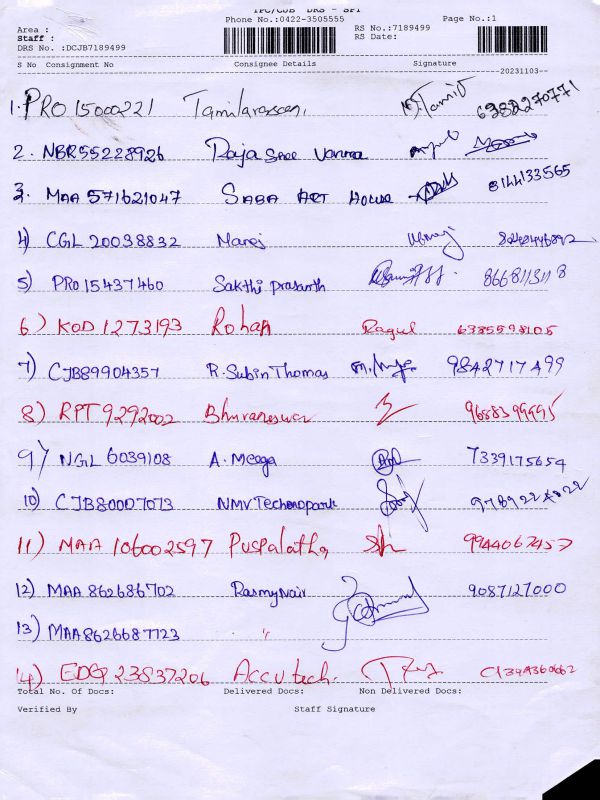 TPC/CJB DRS - SPT
Area : Phone No.:0422-3505555 Page No.:1
Staff : RS No.:7189499
DRS No. :DCJB7189499 RS Date:
S No Consignment No Consignee Details Signature
20231103
1. PRO 15000221 Tamilarassan, 6382270771
2. NBR55228926 Raja Sree Varma
3. MAA 571621047 SABA ART HOUSE 8144133565
4) CGL 20038832 Manoj
5) PRO15437460 Sakthi Prasanth 8668113118
6) KOD 1273193 Rohan Ragul 6385598105
7) CJB89904357 R. Subin Thomas 9842717499
8) RPT 9292002 Bhuvaneswar
9) NGL 6039108 A. Meega 7339175654
10) CJB80007073 NMV Technopark
11) MAA 106002597 Puspalatha 9944067457
12) MAA 862686702 Rasmy Nair 9087127000
13) MAA8626687723 "
14) EDG 23837206 Accutech.
Total No. Of Docs: Delivered Docs: Non Delivered Docs:
Verified By Staff Signature